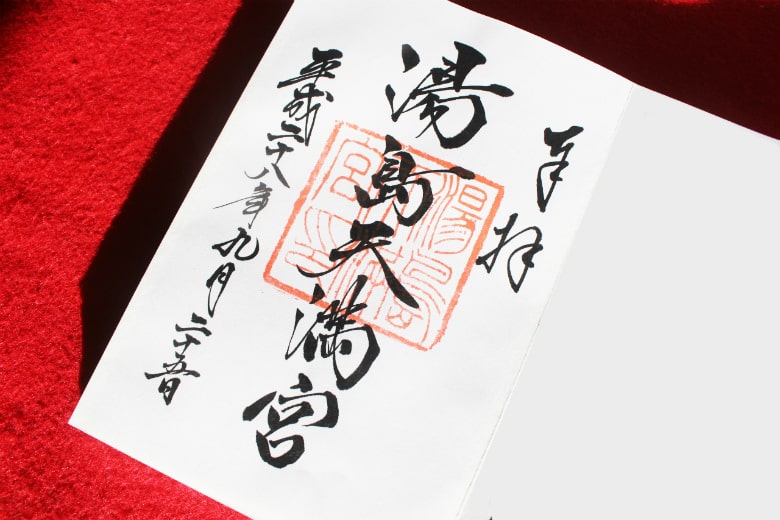 奉拝
湯島天満宮
平成二十八年九月二十五日